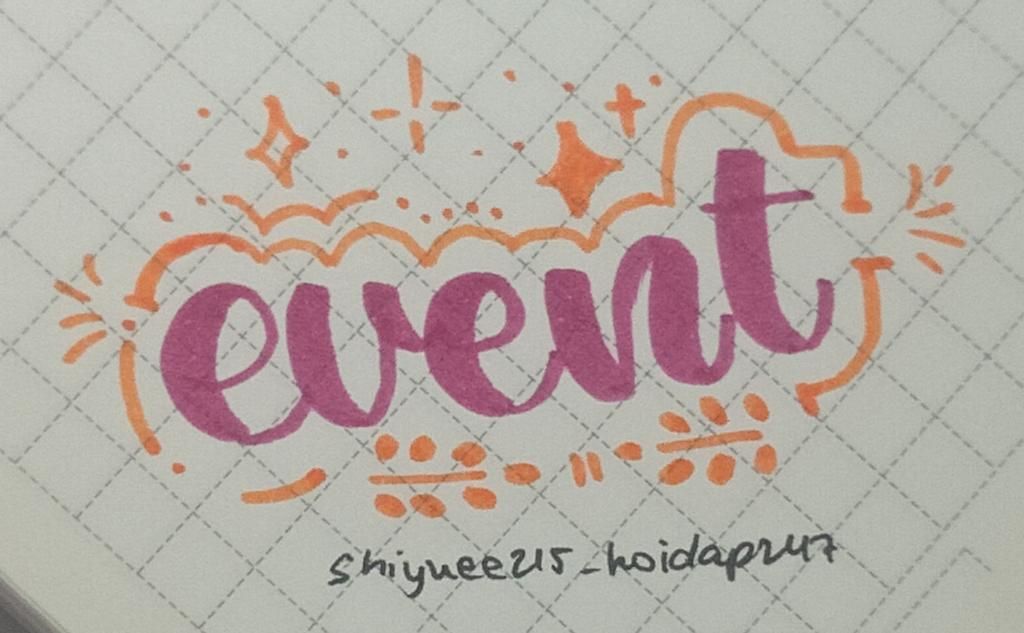 event
shiyuee215_hoidap247